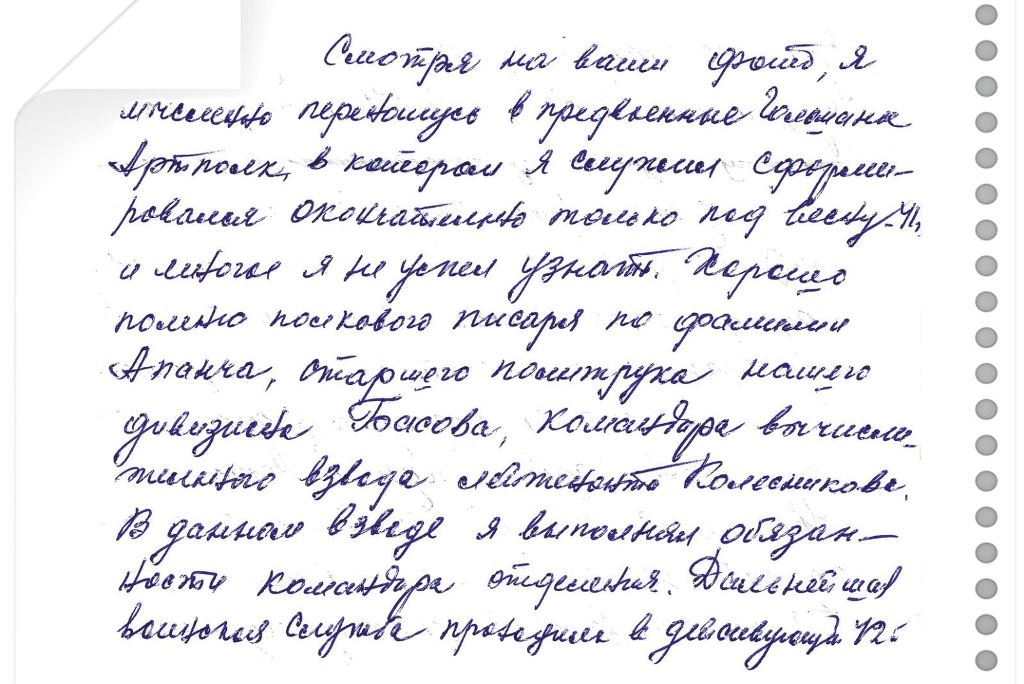 Смотря на ваши фото, я
мысленно переношусь в предвоенные Гольшаны
Артполк, в котором я служил сформи-
ровался окончательно только под весну 41,
и многое я не успел узнать. Хорошо
помню полкового писаря по фамилии
Апанча, старшего политрука нашего
дивизиона Басова, командира вычисли-
тельного взвода лейтенанта Колесникова.
В данном взводе я выполнял обязан-
ности командира отделения. Дальнейшая
воинская служба проходила в